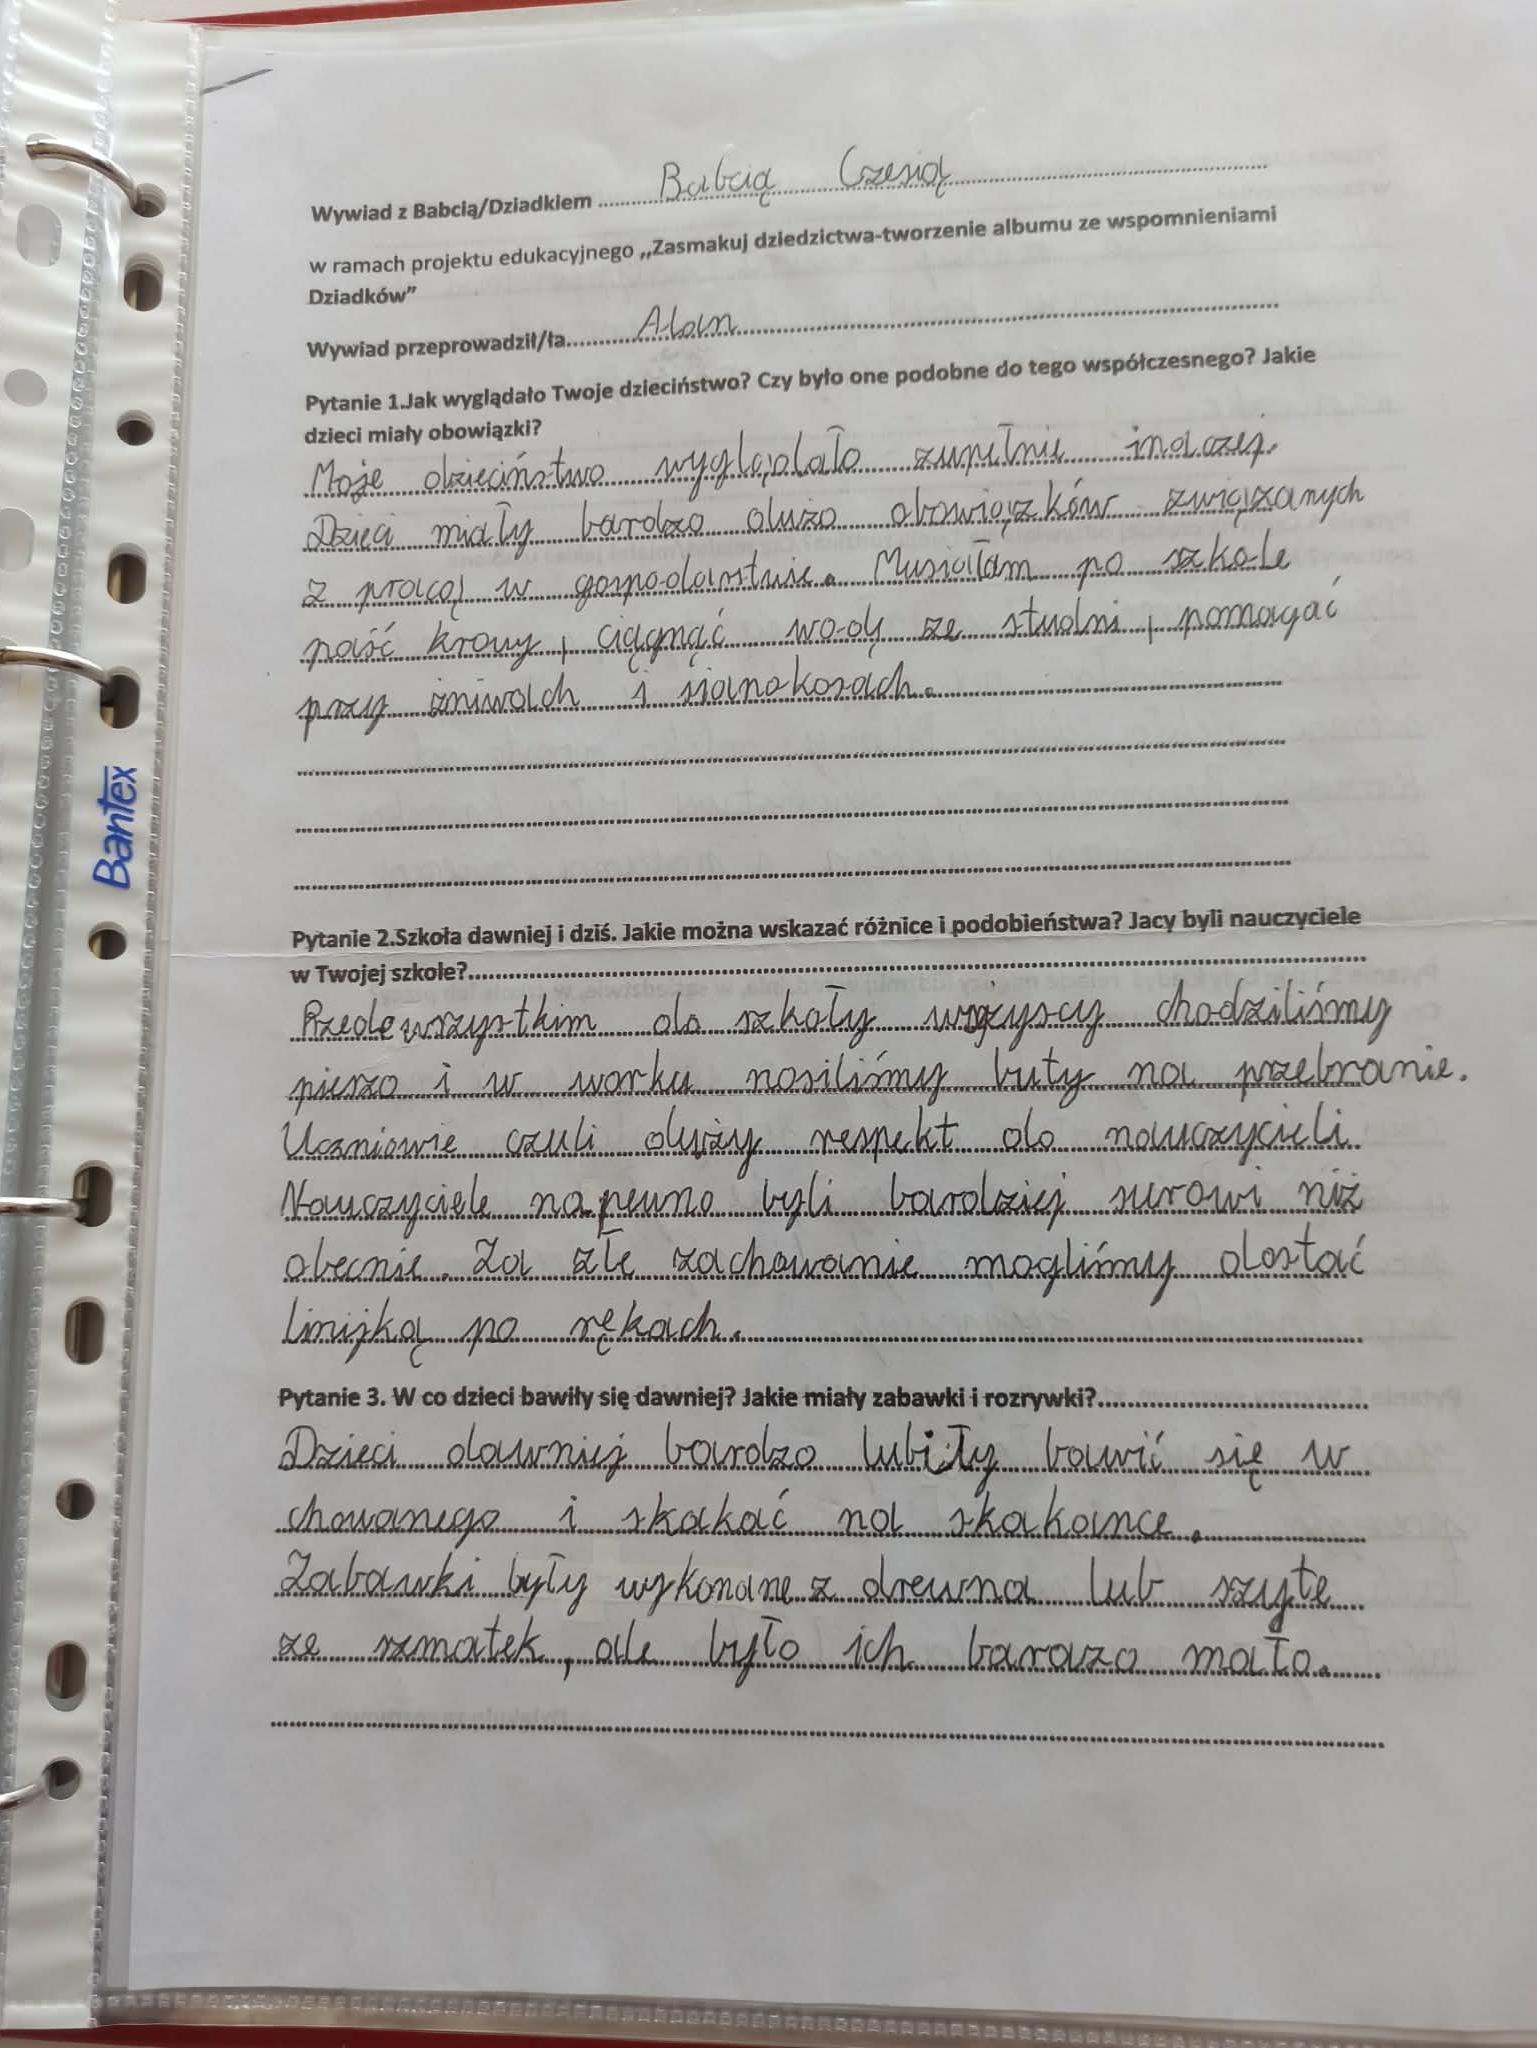 Wywiad z Babcią/Dziadkiem Babcią Czesią
w ramach projektu edukacyjnego „Zasmakuj dziedzictwa-tworzenie albumu ze wspomnieniami
Dziadków”
Wywiad przeprowadził/ła Alan
Pytanie 1.Jak wyglądało Twoje dzieciństwo? Czy było one podobne do tego współczesnego? Jakie
dzieci miały obowiązki?
Moje dzieciństwo wyglądało zupełnie inaczej.
Dzieci miały bardzo dużo obowiązków związanych
z pracą w gospodarstwie. Musiałam po szkole
paść krowy, ciągnąć wody ze studni, pomagać
przy żniwach i sianokosach.
Bantex
Pytanie 2.Szkoła dawniej i dziś. Jakie można wskazać różnice i podobieństwa? Jacy byli nauczyciele
w Twojej szkole?
Przedewszystkim do szkoły wszyscy chodziliśmy
pieszo i w worku nosiliśmy buty na przebranie.
Uczniowie czuli duży respekt do nauczycieli.
Nauczyciele napewno byli bardziej surowi niż
obecnie. Za złe zachowanie mogliśmy dostać
linijką po rękach.
Pytanie 3. W co dzieci bawiły się dawniej? Jakie miały zabawki i rozrywki?
Dzieci dawniej bardzo lubiły bawić się w
chowanego i skakać na skakance.
Zabawki były wykonane z drewna lub szyte
ze szmatek, ale było ich bardzo mało.